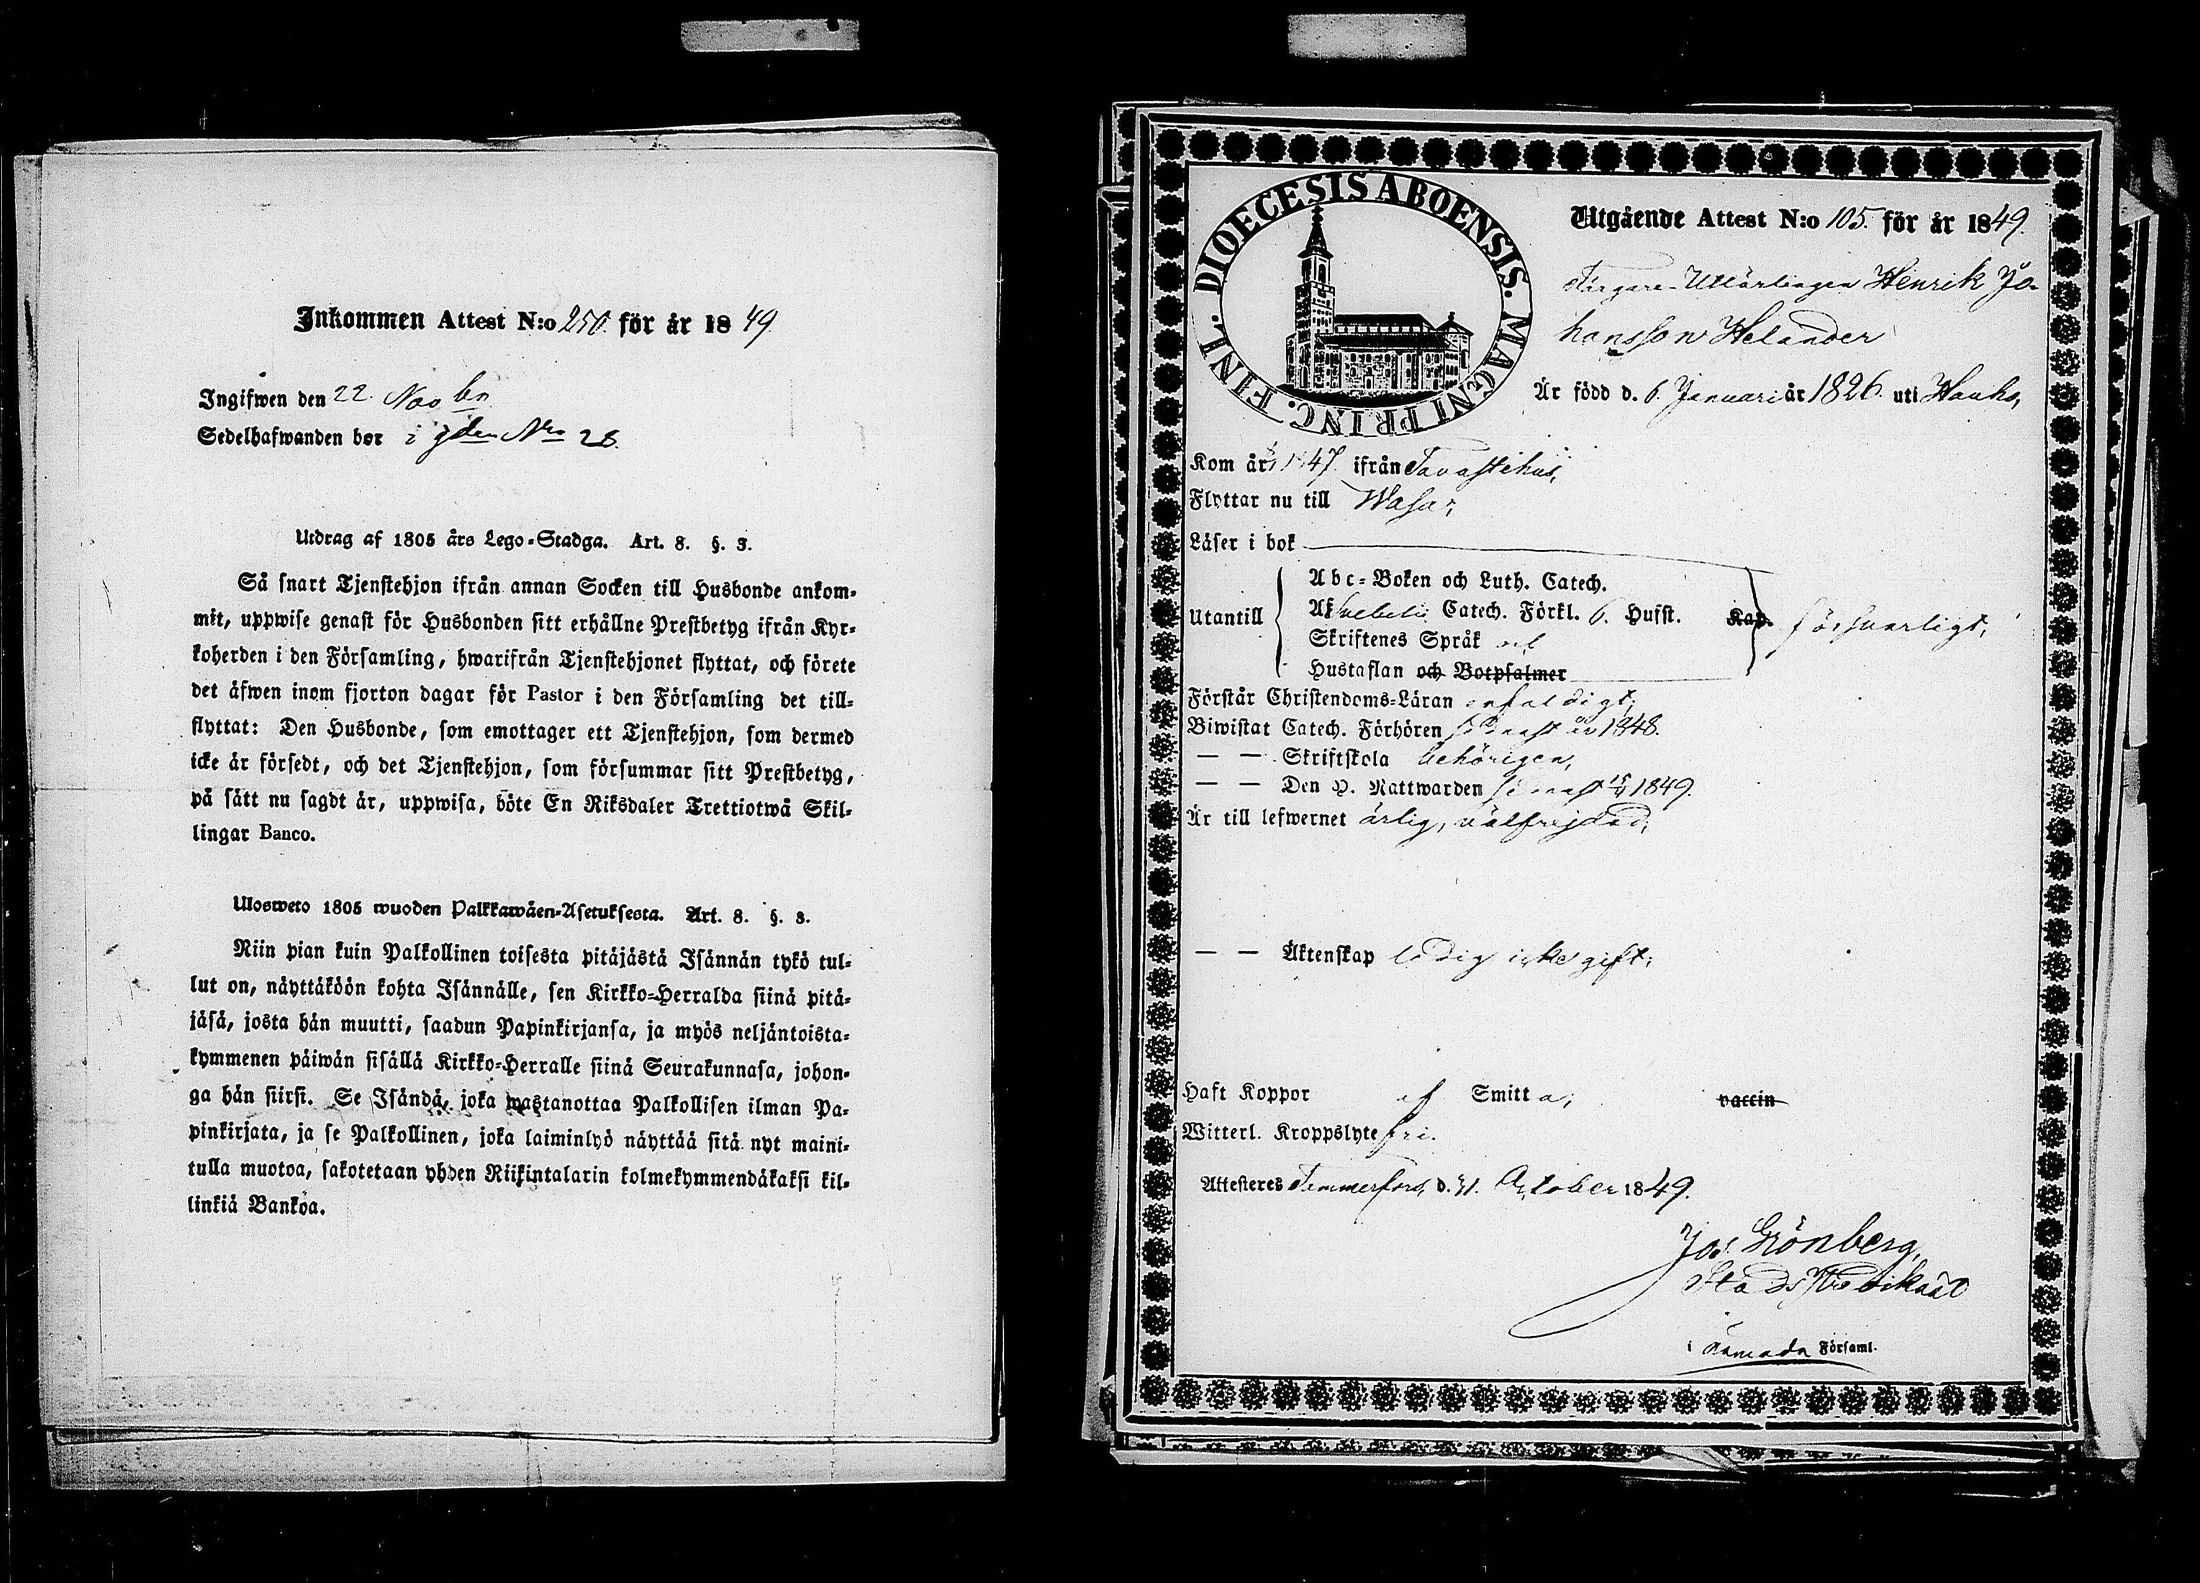 Inkommen Attest N:o 250. för år 1849
Ingifwen den 22. Novbr
Sedelhafwanden bor i gden Nro 28
Utdrag af 1805 års Lego-Stadga. Art. 8. §. 3.
Så snart Tjenstehjon ifrån annan Socken till Husbonde ankom-
mit, uppwise genast för Husbonden sitt erhållne Prestbetyg ifrån Kyr-
koherden i den Församling, hwarifrån Tjenstehjonet flyttat, och förete
det äfwen inom fjorton dagar för Pastor i den Församling det till-
flyttat: Den Husbonde, som emottager ett Tjenstehjon, som dermed
icke är försedt, och det Tjenstehjon, som försummar sitt Prestbetyg,
på sätt nu sagdt är, uppwisa, böte En Riksdaler Trettiotwå Skil-
lingar Banco.
Ulosweto 1805 wuoden Palkkawäen-Asetuksesta. Art. 8. §. 3.
Niin pian kuin Palkollinen toisesta pitäjästä Isännän tykö tul-
lut on, näyttäköön kohta Isännälle, sen Kirkko-Herralda siinä pitä-
jäsä, josta hän muutti, saadun Papinkirjansa, ja myös neljäntoista-
kymmenen päiwän sisällä Kirkko-Herralle siinä Seurakunnasa, johon-
ga hän siirsi. Se Isändä, joka wastanottaa Palkollisen ilman Pa-
pinkirjata, ja se Palkollinen, joka laiminlyö näyttää sitä nyt maini-
tulla muotoa, sakotetaan yhden Riikintalarin kolmekymmendäkaksi kil-
linkiä Bankoa.
DIOECESIS ABOENSIS. MAGNI PRINC. FINL.
Utgående Attest N:o 105. för år 1849.
Färgare-Utlärlingen Henrik Jo-
hansson Helander
Är född d. 6. Januari år 1826. uti Hauho,
Kom år 1847. ifrån Tavastehus,
Flyttar nu till Wasa,
Läser i bok
Abc-Boken och Luth. Catech.
Utantill Af Svebelii Catech. Förkl. 6. Hufst. Kap. försvarligt,
Skriftenes Språk
Hustaflan och Botpsalmer
Förstår Christendoms-Läran enfaldigt,
Biwistat Catech. Förhören sednast år 1848.
— — Skriftskola behörigen,
— — Den H. Nattwarden sednast 1849.
Är till lefwernet ärlig, välfrejdad,
— — Äktenskap ledig icke gift,
Haft Koppor af Smitta, vaccin
Witterl. Kroppslyte fri.
Attesteres Tammerfors, d. 31. October 1849.
Jos. Grönberg,
Stads Predikant
i nämnda Församl.